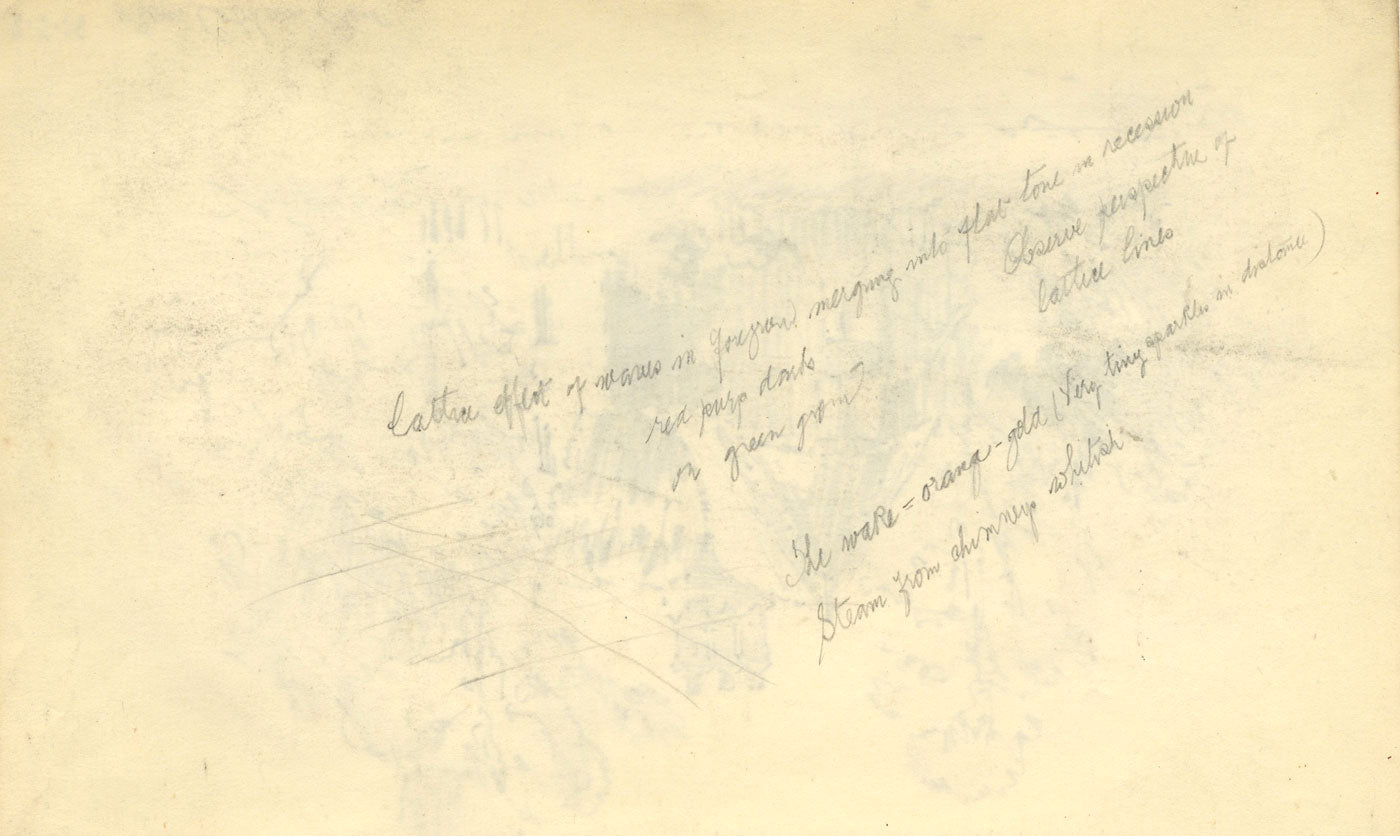 Lattice effect of waves in foregroun. merging into flat tone in recession
red purp darks
on green groun
Observe perspective of
lattice lines
The wake = orange-gold (Very tiny sparkles in distance)
Steam from chimneys whitish